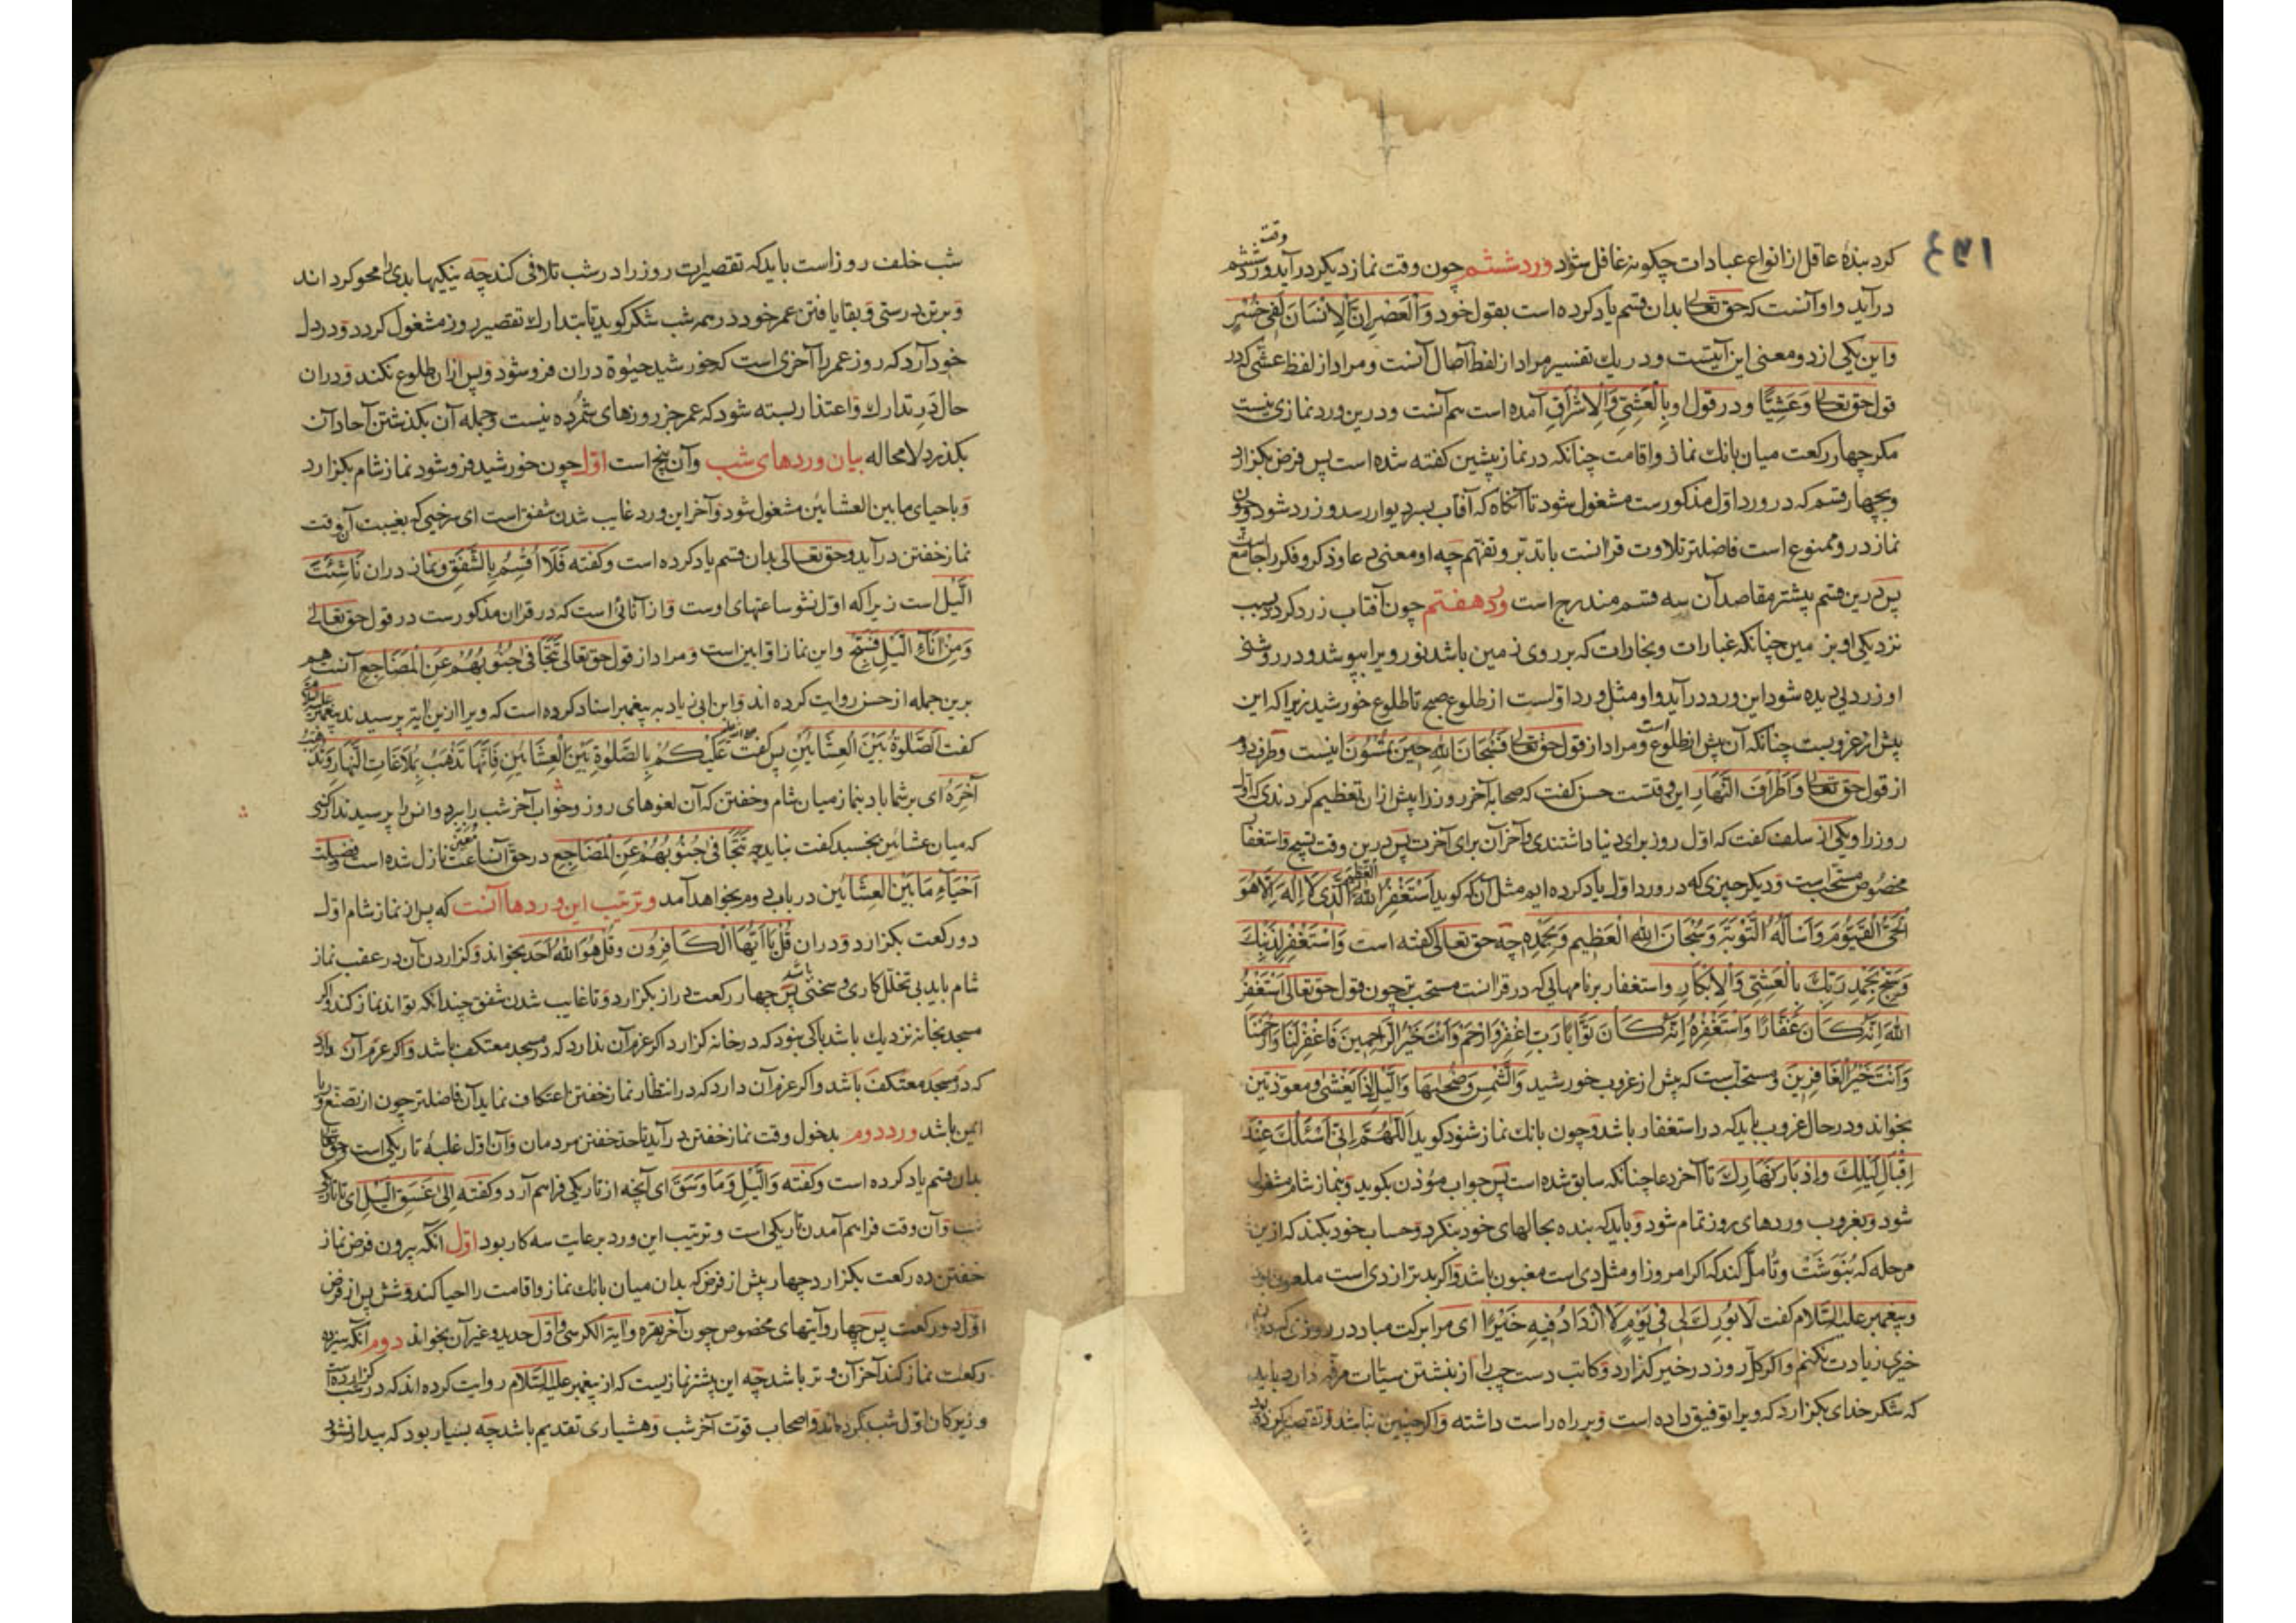 کرد بندهٔ عاقل از انواع عبادات چگونه غافل شود ورد ششم چون وقت نماز دیکر درآید ورد ششم
درآید واو آنست که حق تعالی بدان قسم یاد کرده است بقول خود وَالْعَصْرِ اِنَّ الْاِنْسَانَ لَفِی خُسْرٍ
واین یکی از دو معنی این آیتست ودر یک تفسیر مراد از لفظ آصال آنست ومراد از لفظ عشی که در
قول حق تعالی وَعَشِیًّا ودر قول او بِالْعَشِیِّ وَالْاِشْرَاقِ آمده است هم آنست ودرین ورد نمازی نیست
مکر چهار رکعت میان بانک نماز واقامت چنانکه در نماز پیشین کفته شده است پس فرض بکزارد
وبچهار قسم که در ورد اول مذکورست مشغول شود تا آنکاه که آفتاب بسر دیوار رسد وزرد شود وچون
نماز در و ممنوع است فاضلتر تلاوت قرآنست با تدبر وتفهم چه او معنی دعا وذکر وفکر را جامع است
پس درین قسم بیشتر مقاصد آن سه قسم مندرج است ورد هفتم چون آفتاب زرد کردد بسبب
نزدیکی او بزمین چنانکه غبارات وبخارات که بر روی زمین باشد نور ویرا بپوشد ودر روشنی
او زردیی دیده شود این ورد درآید واو مثل ورد اولست از طلوع صبح تا طلوع خورشید زیرا که این
پیش از غروبست چنانکه آن پیش از طلوع است ومراد از قول حق تعالی فَسُبْحَانَ اللهِ حِینَ تُمْسُونَ اینست وطرف دوم
از قول حق تعالی وَاَطْرَافَ النَّهَارِ این وقتست حسن کفت که صحابه آخر روز را بیش از آن تعظیم کردندی که اول
روز را ویکی از سلف کفت که اول روز برای دنیا داشتندی وآخر آن برای آخرت پس درین وقت تسبیح واستغفار
مخصوص مستحب است ودیکر چیزی که در ورد اول یاد کرده ایم مثل آن که کوید اَسْتَغْفِرُ اللهَ الْعَظِیمَ الَّذِی لَا اِلٰهَ اِلَّا هُوَ
الْحَیَّ الْقَیُّومَ وَاَسْاَلُهُ التَّوْبَةَ وَسُبْحَانَ اللهِ الْعَظِیمِ وَبِحَمْدِهِ چه حق تعالی کفته است وَاسْتَغْفِرْ لِذَنْبِکَ
وَسَبِّحْ بِحَمْدِ رَبِّکَ بِالْعَشِیِّ وَالْاِبْکَارِ واستغفار بر نامهایی که در قرآنست مستحب تر چون قول حق تعالی اَسْتَغْفِرُ
اللهَ اِنَّهُ کَانَ غَفَّارًا وَاَسْتَغْفِرُهُ اِنَّهُ کَانَ تَوَّابًا رَبِّ اغْفِرْ وَارْحَمْ وَاَنْتَ خَیْرُ الرَّاحِمِینَ فَاغْفِرْ لَنَا وَارْحَمْنَا
وَاَنْتَ خَیْرُ الْغَافِرِینَ ومستحب است که پیش از غروب خورشید وَالشَّمْسِ وَضُحٰیهَا وَاللَّیْلِ اِذَا یَغْشٰی ومعوذتین
بخواند ودر حال غروب باید که در استغفار باشد وچون بانک نماز شنود کوید اَللّٰهُمَّ اِنِّی اَسْئَلُکَ عِنْدَ
اِقْبَالِ لَیْلِکَ وَاِدْبَارِ نَهَارِکَ تا آخر دعا چنانکه سابق شده است پس جواب مؤذن بکوید وبنماز شام مشغول
شود وبغروب وردهای روز تمام شود وباید که بنده بحالهای خود بنکرد وحساب خود بکند که ازین
مرحله که بنوشت وتأمل کند که اکر امروز او مثل دی است مغبون باشد واکر بدتر از دی است ملعون بود
وپیغمبر علیه السلام کفت لَا بُورِکَ لِی فِی یَوْمٍ لَا اَزْدَادُ فِیهِ خَیْرًا ای مرا برکت مباد در روزی که در
خیری زیادت نکنم واکر کل روز در خیر کذارد وکاتب دست چپ را از نبشتن سیئات مرفه دارد باید
که شکر خدای بکزارد که ویرا توفیق داده است وبر راه راست داشته واکر چنین نباشد وتقصیر کرده بود
شب خلف روز است باید که تقصیرات روز را در شب تلافی کند چه نیکیها بدی را محو کرداند
وبر تن درستی وبقا یافتن عمر خود در همه شب شکر کوید تا بتدارک تقصیر روز مشغول کردد ودر دل
خود آرد که روز عمر را آخری است که خورشید حیوة دران فرو شود وپس ازان طلوع نکند ودران
حال در تدارک واعتذار بسته شود که عمر جز روزهای شمرده نیست وجمله آن بکذشتن آحاد آن
بکذرد لامحاله بیان وردهای شب وآن پنج است اول چون خورشید فرو شود نماز شام بکزارد
وباحیای مابین العشائین مشغول شود وآخر این ورد غایب شدن شفق است ای سرخیی که بغیبت آن وقت
نماز خفتن درآید وحق تعالی بدان قسم یاد کرده است وکفته فَلَا اُقْسِمُ بِالشَّفَقِ ونماز دران نَاشِئَتَ
الَّیْلِ است زیرا که اول نشو ساعتهای اوست واز آنائی است که در قرآن مذکورست در قول حق تعالی
وَمِنْ اٰنَاءِ الَّیْلِ فَسَبِّحْ واین نماز اوّابین است ومراد از قول حق تعالی تَتَجَافٰی جُنُوبُهُمْ عَنِ الْمَضَاجِعِ آنست هم
برین جمله از حسن روایت کرده اند وابن ابی زیاد به پیغمبر اسناد کرده است که ویرا ازین آیة پرسیدند پیغمبر علیه السلام
کفت اَلصَّلٰوةُ بَیْنَ الْعِشَائَیْنِ پس کفت عَلَیْکُمْ بِالصَّلٰوةِ بَیْنَ الْعِشَائَیْنِ فَاِنَّهَا تَذْهَبُ بِمُلَاغَاتِ النَّهَارِ وَتُهَذِّبُ
آخِرَهُ ای بر شما باد بنماز میان شام وخفتن که آن لغوهای روز وخواب آخر شب را ببرد وانس را پرسیدند از کسی
که میان عشائین بخسبد کفت نباید چه تَتَجَافٰی جُنُوبُهُمْ عَنِ الْمَضَاجِعِ در حق آن ساعت نازل شده است وفضیلت
اَحْیَاءِ مَا بَیْنَ الْعِشَائَیْنِ در باب دوم بخواهد آمد وترتیب این وردها آنست که پس از نماز شام اول
دو رکعت بکزارد ودران قُلْ یَا اَیُّهَا الْکَافِرُون وقُلْ هُوَ اللهُ اَحَد بخواند وکزاردن آن در عقب نماز
شام باید بی تخلل کاری وسخنی پس چهار رکعت دراز بکزارد وتا غایب شدن شفق چندانکه تواند نماز کند واکر
مسجد بخانه نزدیک باشد باکی نبود که در خانه کزارد اکر عزم آن ندارد که در مسجد معتکف باشد واکر عزم آن دارد
که در مسجد معتکف باشد واکر عزم آن دارد که در انتظار نماز خفتن اعتکاف نماید آن فاضلتر چون از تصنع وریا
ایمن باشد ورد دوم بدخول وقت نماز خفتن درآید تا حد خفتن مردمان وآن اول غلبهٔ تاریکی است وحق تعالی
بدان قسم یاد کرده است وکفته وَالَّیْلِ وَمَا وَسَقَ ای آنچه از تاریکی فراهم آرد وکفته اِلٰی غَسَقِ الَّیْلِ ای تا تاریکی
شب وآن وقت فراهم آمدن تاریکی است وترتیب این ورد برعایت سه کار بود اول آنکه بیرون فرض نماز
خفتن ده رکعت بکزارد چهار پیش از فرض که بدان میان بانک نماز واقامت را احیا کند وشش پس از فرض
اول دو رکعت پس چهار وآیتهای مخصوص چون آخر بقره وآیة الکرسی واول حدید وغیر آن بخواند دوم آنکه سیزده
رکعت نماز کند آخر آن وتر باشد چه این بیشتر نمازیست که از پیغمبر علیه السلام روایت کرده اند که در شب کزارده است
وزیرکان اول شب کرده اند واصحاب قوت آخر شب وهشیاری تقدیم باشد چه بسیار بود که بیدار نشود